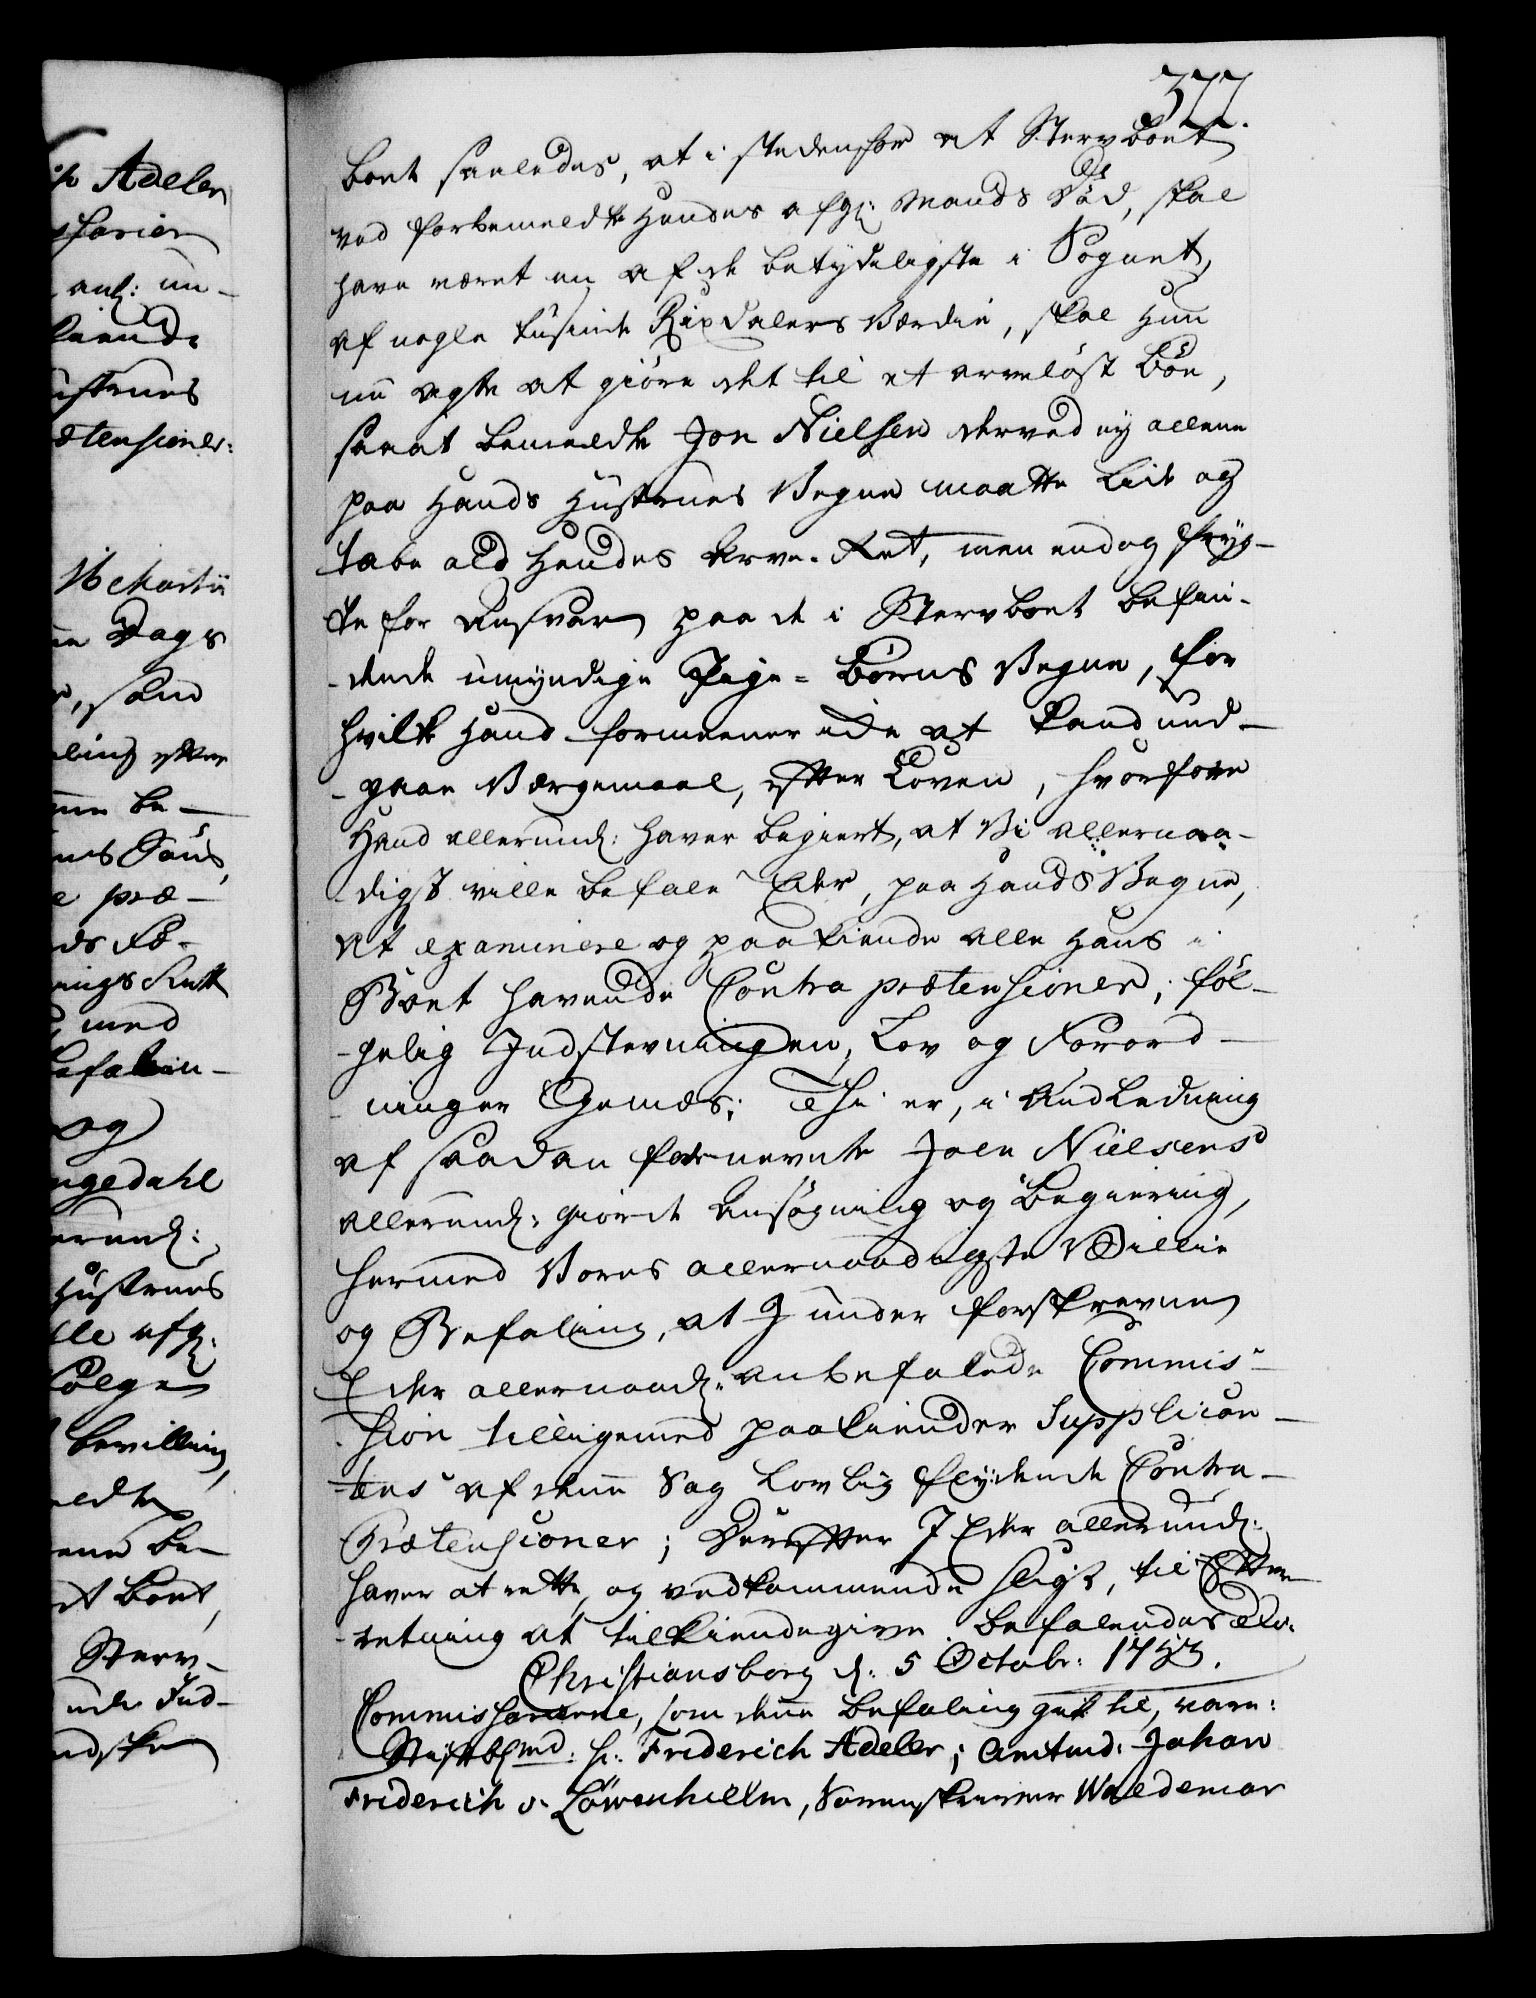 377.
boet saaledes, at i stedenfor at Stervboet
ved forbemeldte Hendes afg: Mands Död, skal
have været en af de betydeligste i Sognet,
af nogle tusinde Rixdalers Værdie, skal Hun
nu agte at giöre det til et arvelöst Boe,
saa at bemeldte Jon Nielsen derved ej allene
paa Hands Hustrues Vegne maatte lide og
tabe ald Hendes Arve-Ret, men endog fryg-
te for Ansvar paa de i Stervboet befin-
dende umyndige Pige-Börns Vegne, for
hvilke Hand formeener icke at kand und-
gaae Værgemaal, efter Loven, hvorfore
Hand allerund: haver begiert, at Vi allernaa-
digst ville befale Eder, paa Hands Vegne,
at examinere og paakiende alle Hans i
Boet havende Contra prætensioner, föl-
gelig Indstevningen, Lov og Forord-
ninger Gemæs; Thi er, i Anledning
af saadan fornevnte Joen Nielsens
allerund: giorde Ansögning og Begiering,
hermed Vores allernaadigste Villie
og Befaling, at I under forskrevne
Eder allernaad: anbefalede Commis-
sion tilligemed paakiender Supplican-
tens af denne Sag lovlig flydende Contra-
Prætensioner; Derefter I Eder allerund:
haver at rette, og vedkommende sligt, til Efter-
retning at tilkiendegive. Befalendes Eder
Christiansborg d: 5 Octobr: 1753.
Commissarierne, som denne befaling gik til, vare:
Stiftbfmd: H: Friderich Adeler; Amtmd: Johan
Friderich v. Löwenhielm, Sorenskriver Waldemar
ch Adeler
ssarier
anl: un-
kiende
ustrues
ætensioner:
16 Martii
ne Dags
r, som
ling efter
nne be-
nes Sön,
e præ-
nings Rett
med
befalin-
og
ngedahl
erund:
Hustrues
lle afg:
fölge
bevilling,
edte
enne be-
et boet,
Sterv-
nde Ind-
ndske